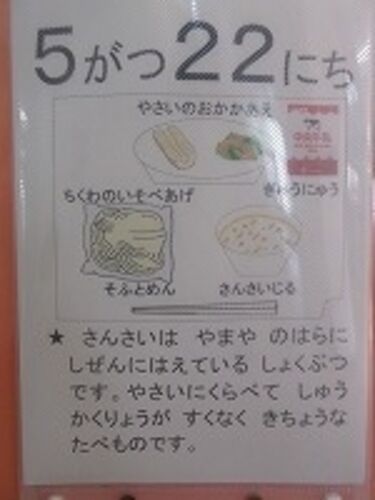 5がつ22にち
やさいのおかかあえ
ぎゅうにゅう
ちくわのいそべあげ
そふとめん
さんさいじる
★ さんさいは やまや のはらに
しぜんにはえている しょくぶつ
です。やさいにくらべて しゅう
かくりょうが すくなく きちょうな
たべものです。